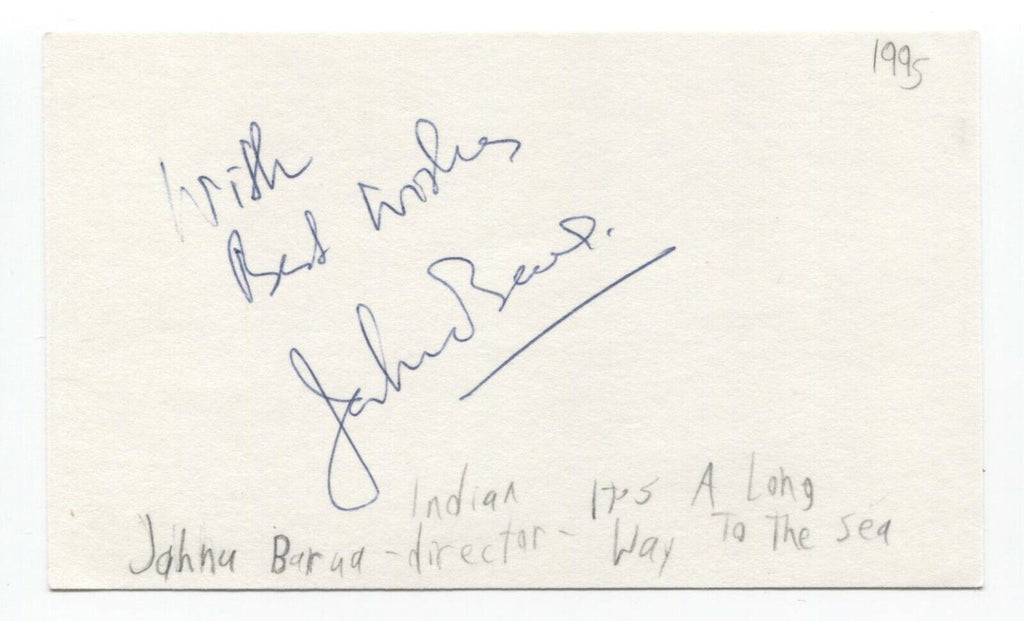 1995
With
Best Wishes
Jahnu Barua.
Indian It's A Long
Jahnu Barua - director - Way To The Sea